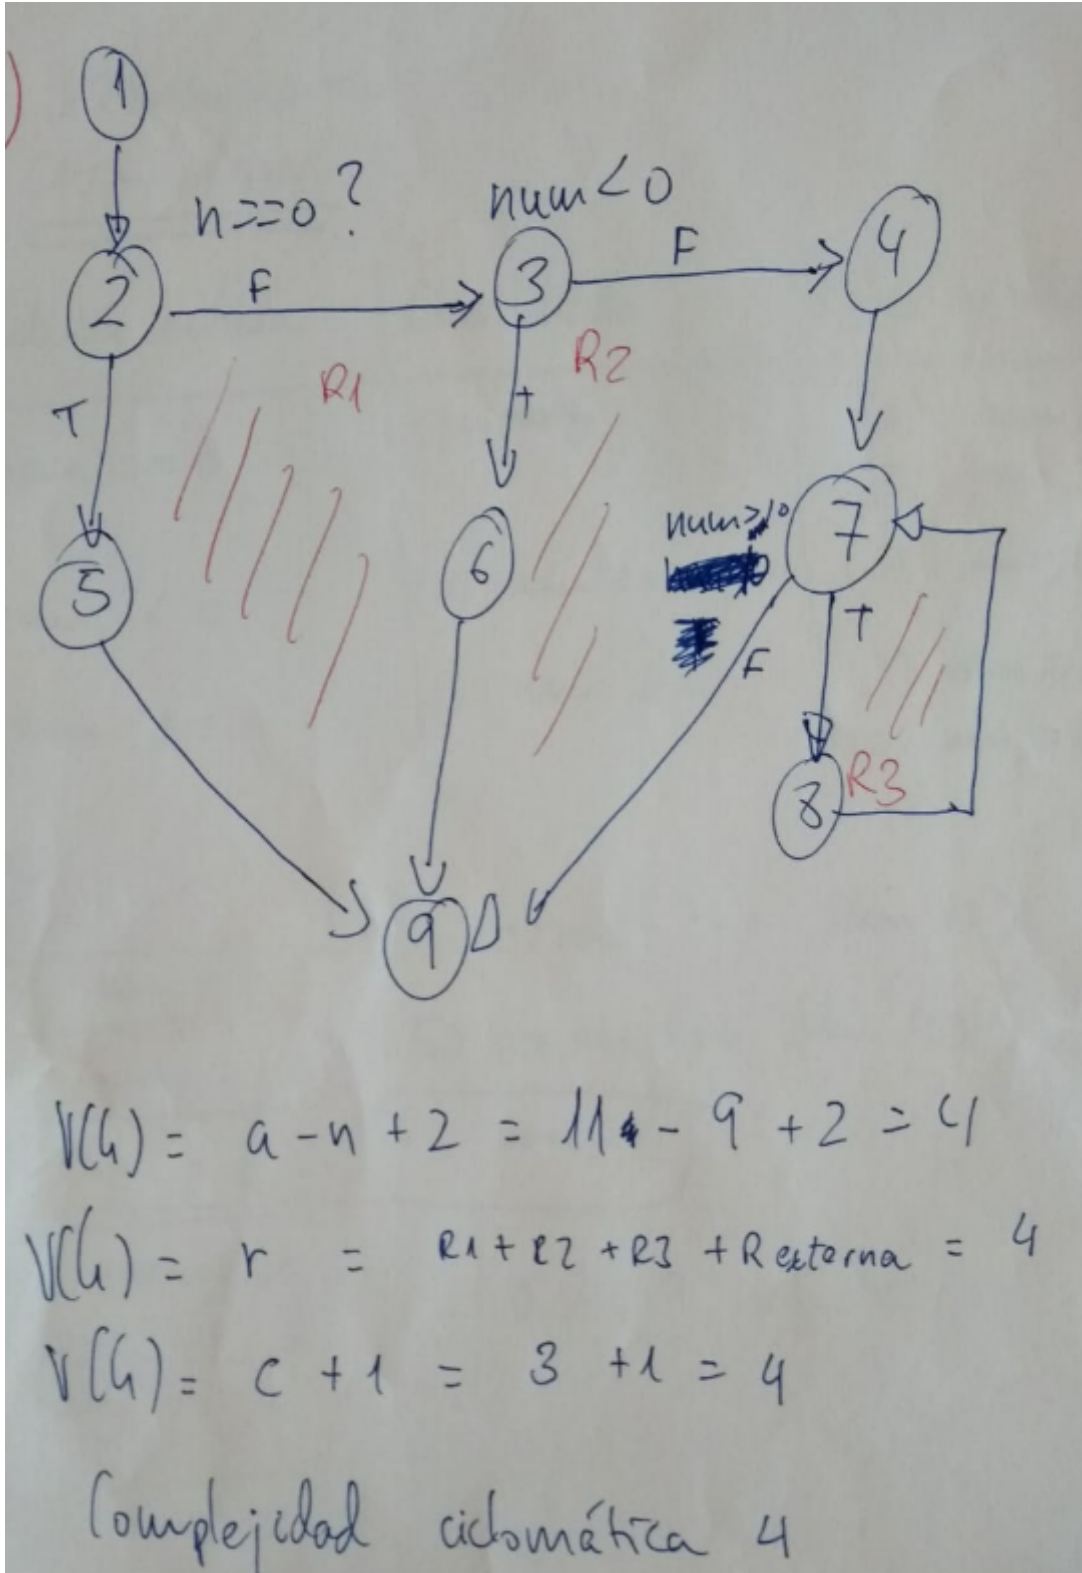 )
1
n==0 ?
num<0
2
F
3
F
4
T
R1
T
R2
5
6
num>10
7
T
F
8
R3
9
V(G) = a - n + 2 = 11 - 9 + 2 = 4
V(G) = r = R1 + R2 + R3 + R externa = 4
V(G) = c + 1 = 3 + 1 = 4
Complejidad ciclomática 4